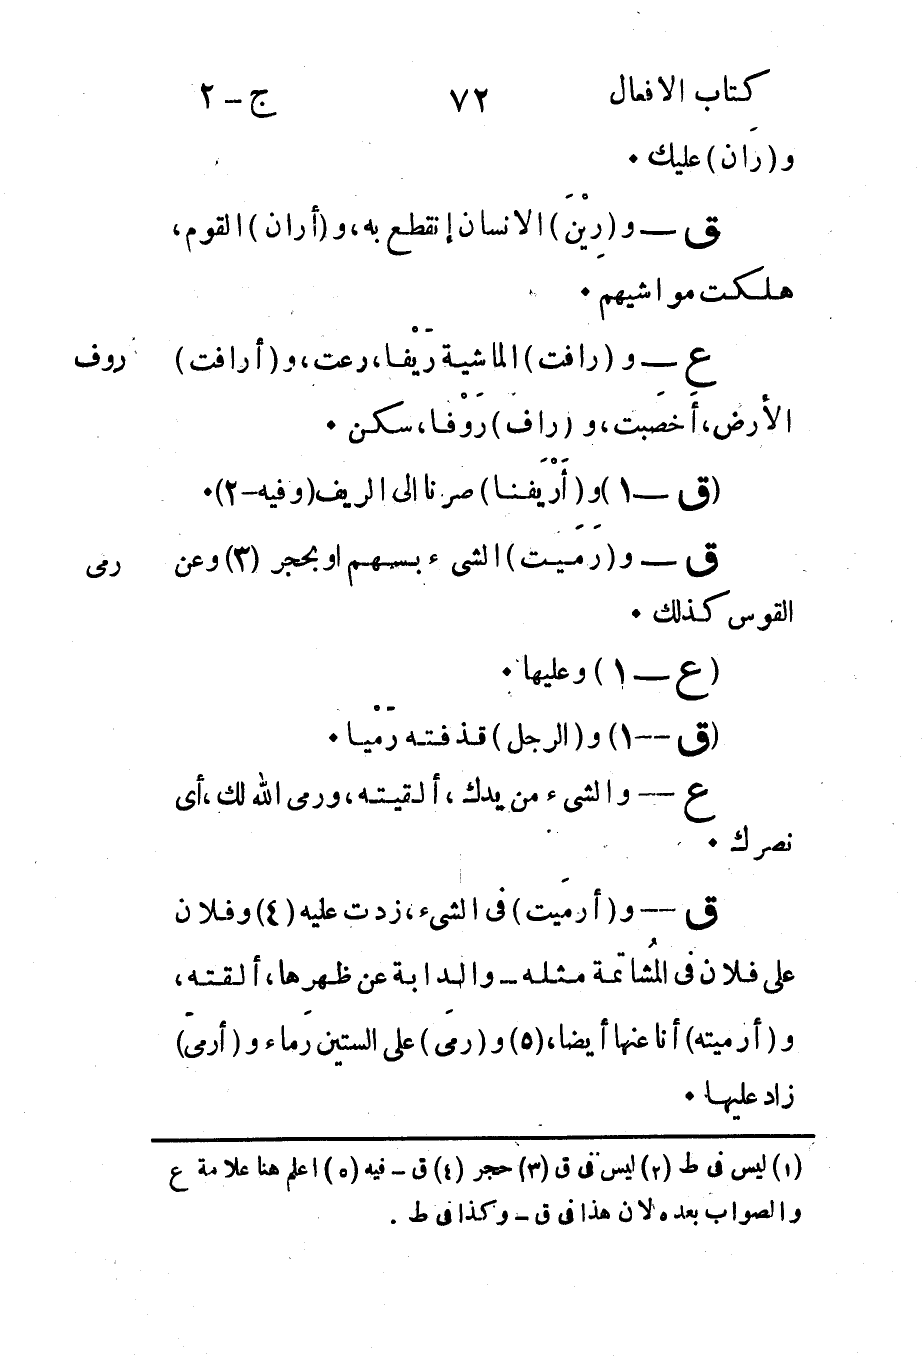 كتاب الافعال ٧٢ ج – ٢
و (رَان) عليك ٠
ق — و (رِيْنَ) الانسان إنقطع به، و (أران) القوم،
هلكت مواشيهم ٠
ع — و (رافت) الماشية رَيْفا، رعت، و (أرافت) روف
الأرض، أَخصَبت، و (راف) رَوْفا، سكن ٠
(ق — ١) و (أَرْيَفنا) صرنا الى الريف (وفيه – ٢) ٠
ق — و (رَمَيت) الشىء بسهم او بحجر (٣) وعن رمى
القوس كذلك ٠
(ع — ١) وعليها ٠
(ق –– ١) و (الرجل) قذفته رَمْيا ٠
ع –– والشىء من يدك، ألقيته، ورمى الله لك، أى
نصرك ٠
ق –– و (أرمَيت) فى الشىء، زدت عليه (٤) وفلان
على فلان فى المُشاتمة مثله – والدابة عن ظهرها، ألقته،
و (أرميته) أنا عنها أيضا، (٥) و (رمَى) على الستين رَماء و (أرمَى)
زاد عليها ٠
(١) ليس فى ط (٢) ليس فى ق (٣) حجر (٤) ق – فيه (٥) اعلم هنا علامة ع
والصواب بعده لان هذا فى ق – وكذا فى ط .